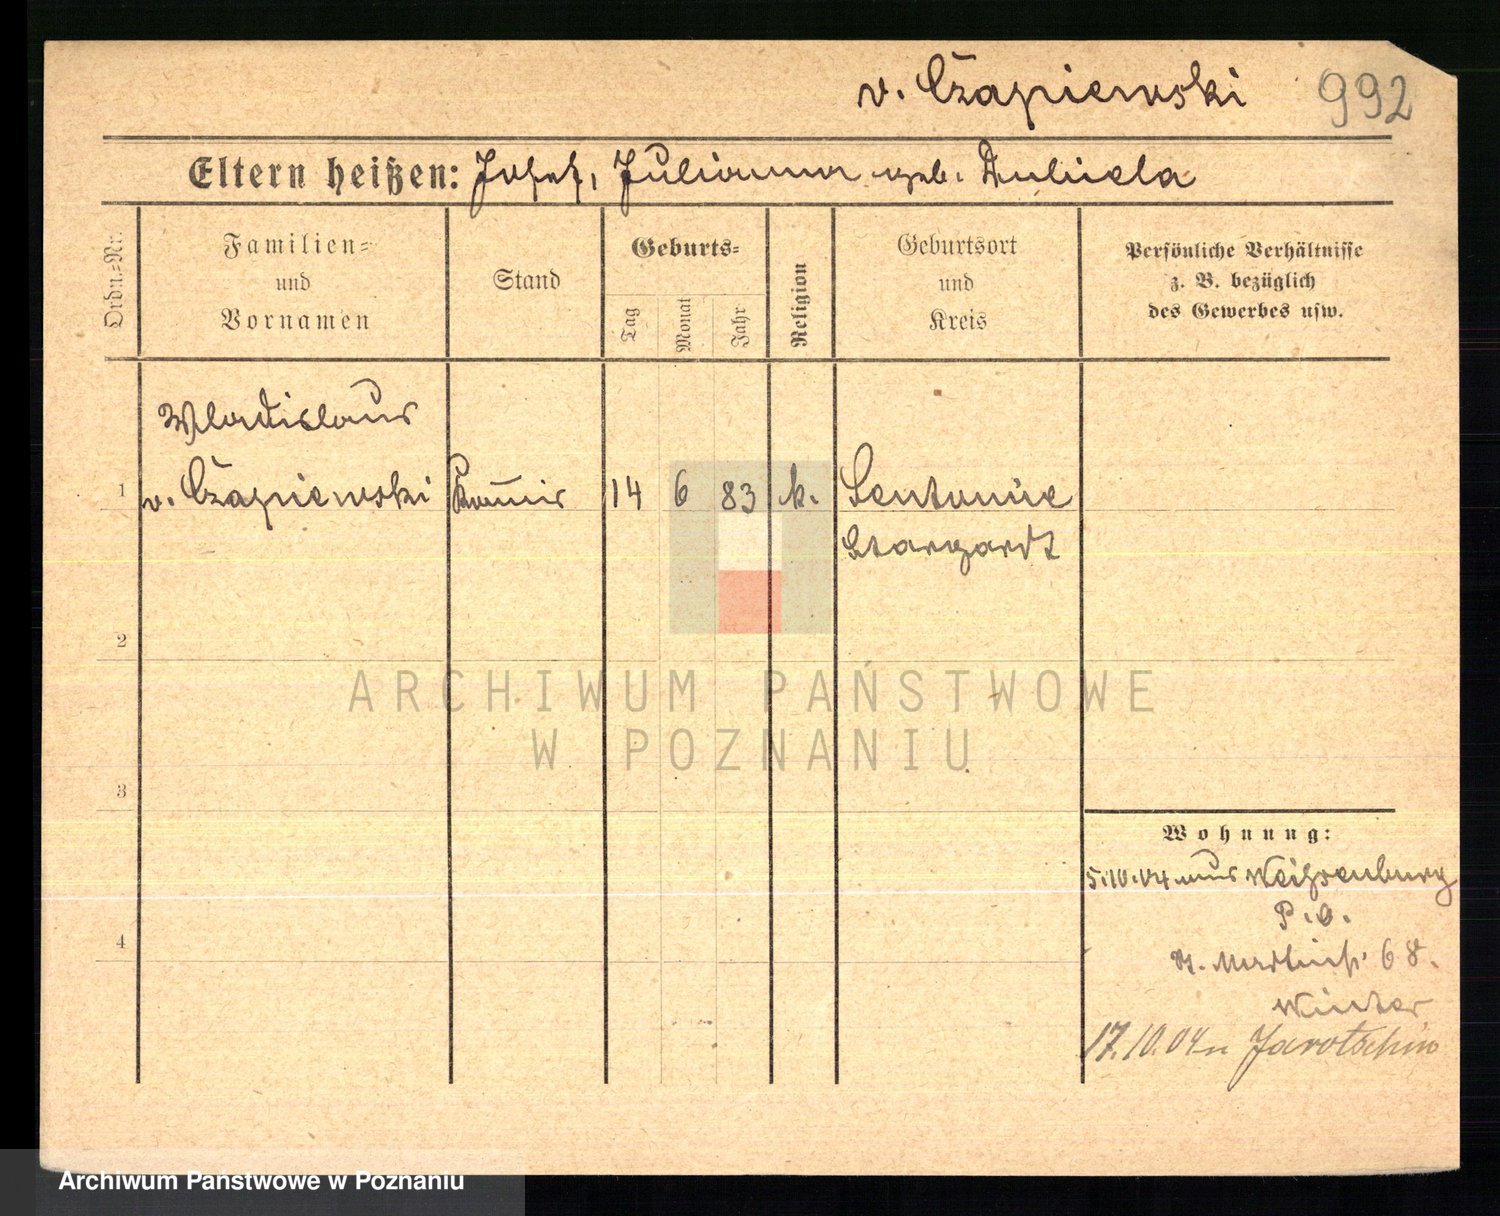 v. Czapiewski 992
Eltern heißen: Josef, Julianna geb. Dubiela
Ordn.=Nr.
Familien=
und
Vornamen
Stand
Geburts=
Tag
Monat
Jahr
Religion
Geburtsort
und
Kreis
Persönliche Verhältnisse
z. B. bezüglich
des Gewerbes usw.
Wladislaus
1 v. Czapiewski Kommis 14 6 83 k. Lentomie
Stargardt
2
3
4
Wohnung:
5.10.04 aus Weißenburg
P. O.
St. Martinstr. 68.
Winter
17.10.04 n Jarotschin
ARCHIWUM PAŃSTWOWE
W POZNANIU
Archiwum Państwowe w Poznaniu